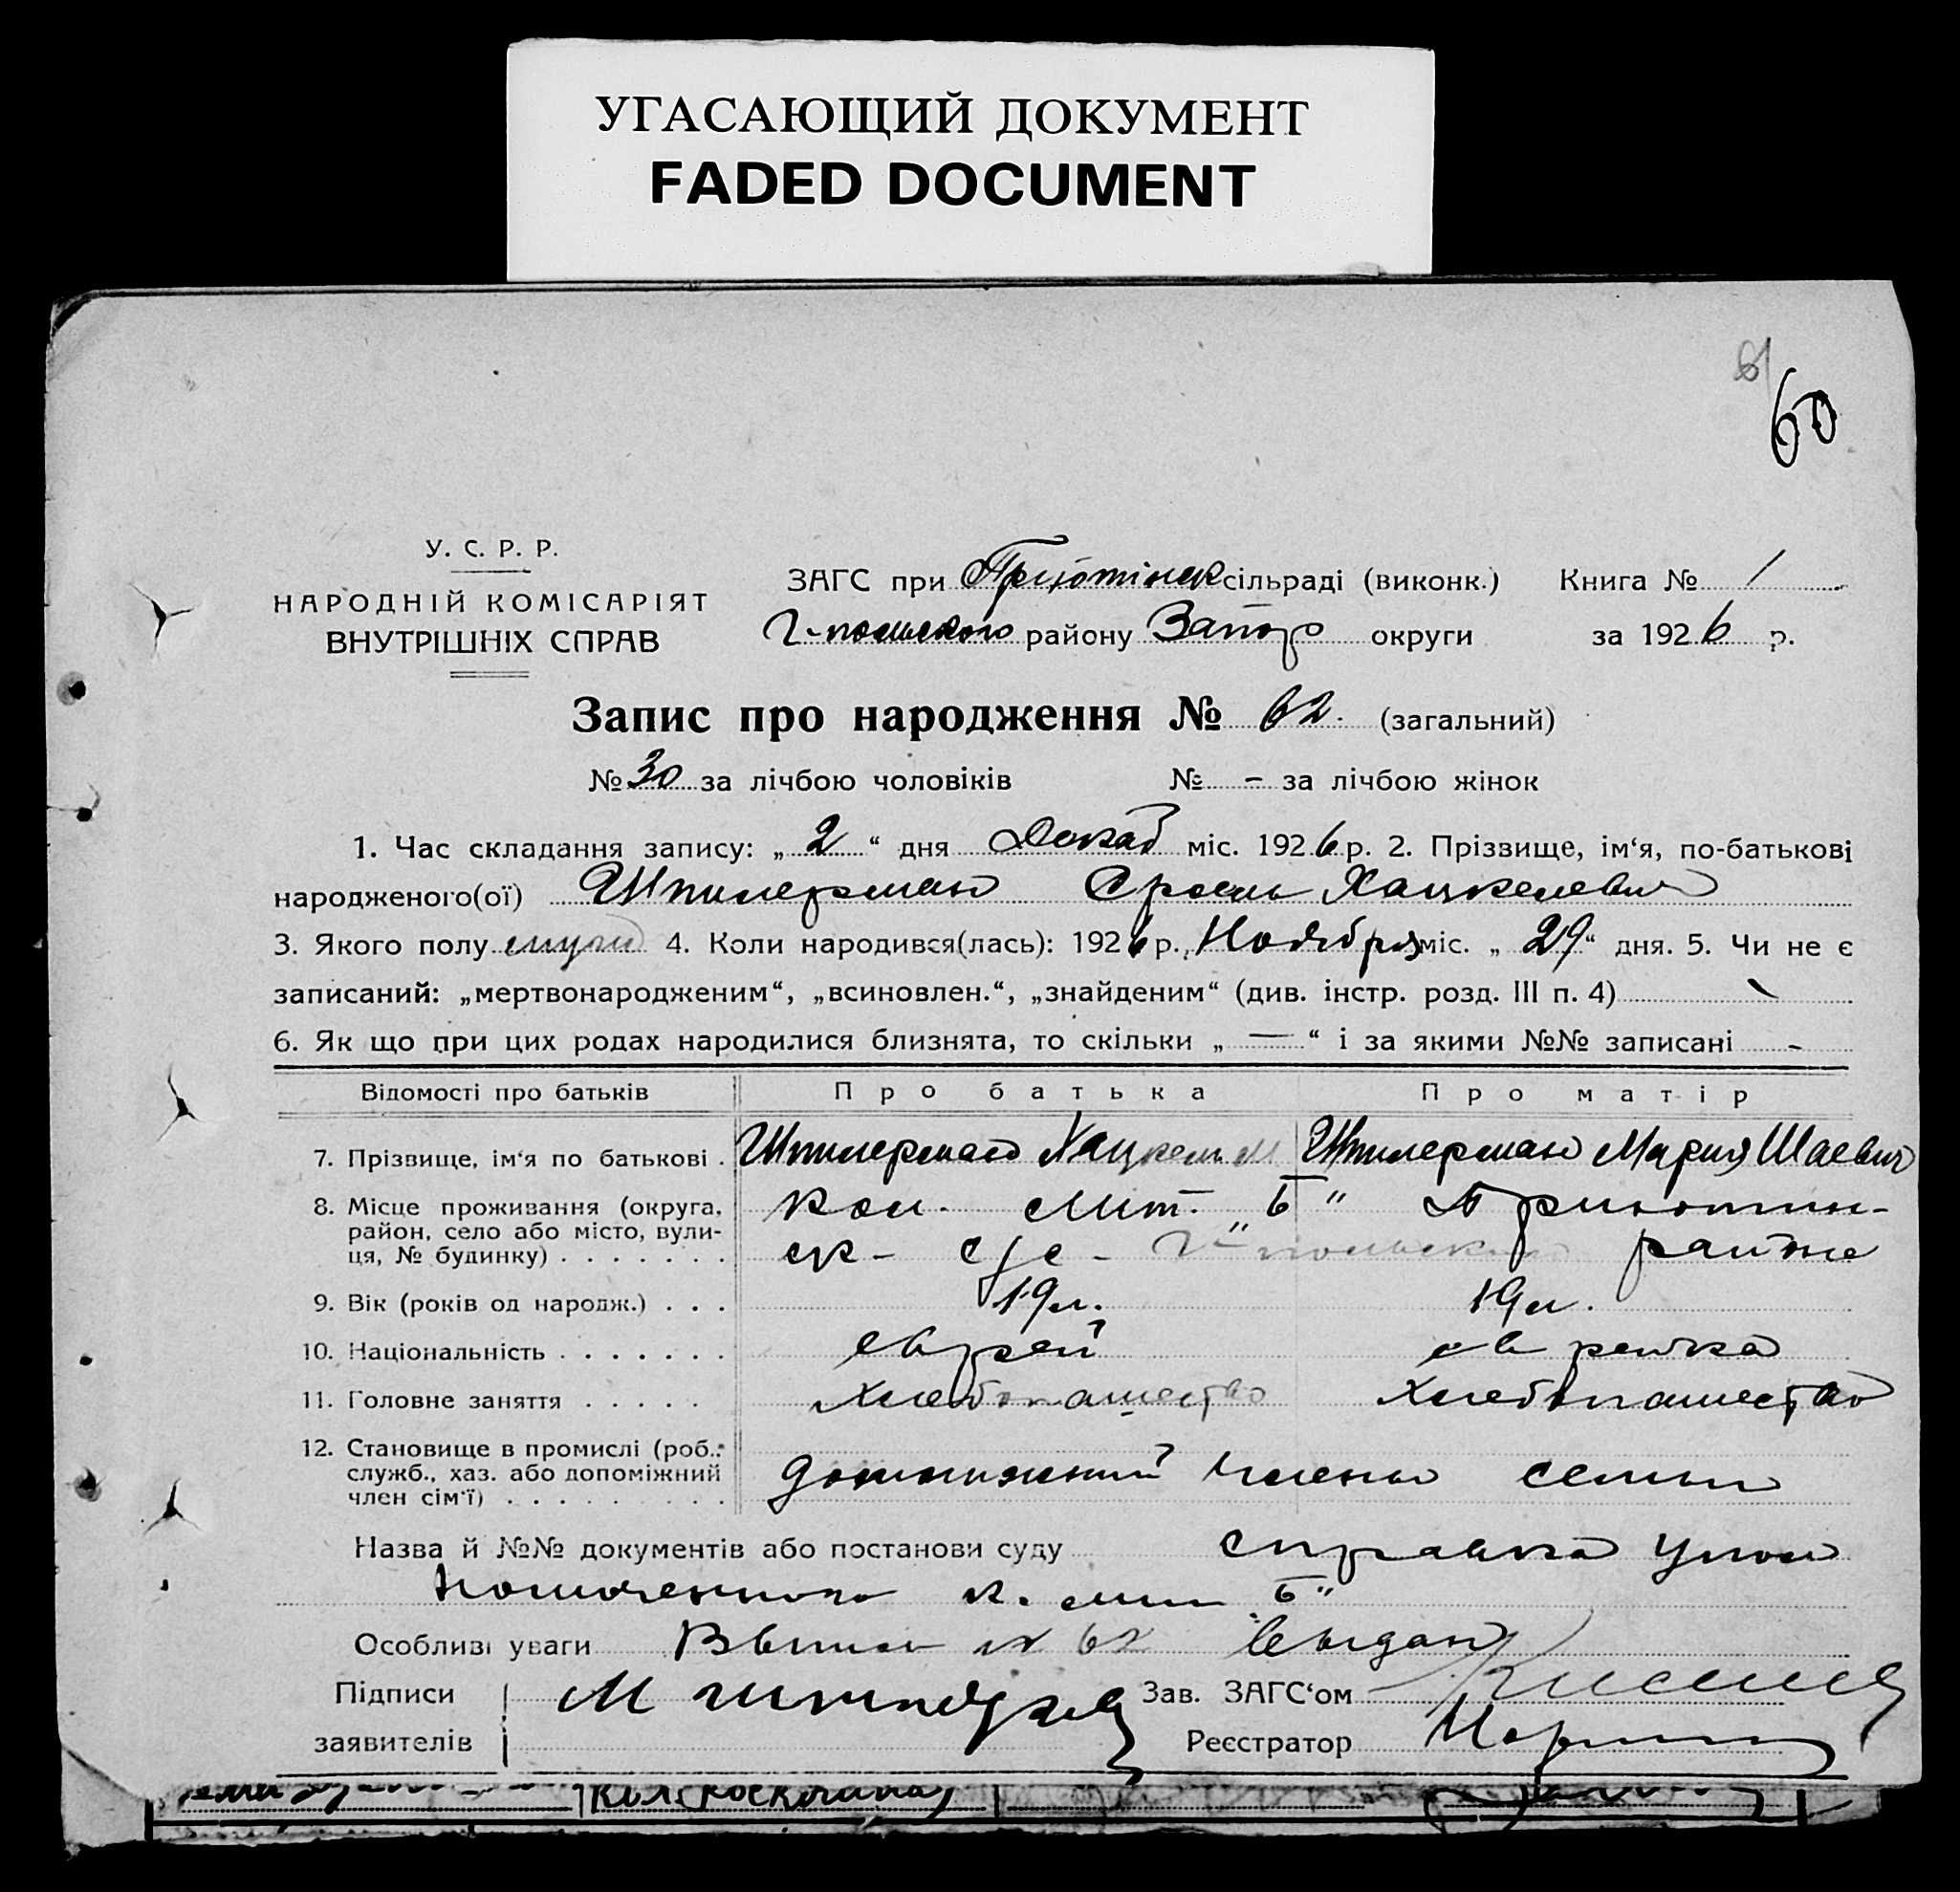 УГАСАЮЩИЙ ДОКУМЕНТ
FADED DOCUMENT
60
У. С. Р. Р.
НАРОДНІЙ КОМІСАРІЯТ
ВНУТРІШНІХ СПРАВ
ЗАГС при Приютінск сільраді (виконк.) Книга № 1
Г-польского району Запор округи за 1926 р.
Запис про народження № 62. (загальний)
№ 30 за лічбою чоловіків № - за лічбою жінок
1. Час складання запису: „ 2 “ дня Декаб міс. 1926 р. 2. Прізвище, ім‘я, по-батькові
народженого(ої) Шпилерман Сроель Хацкелевич
3. Якого полу 4. Коли народився(лась): 1926 р. Ноября міс. „ 29 “ дня. 5. Чи не є
записаний: „мертвонародженим“, „всиновлен.“, „знайденим“ (див. інстр. розд. III п. 4)
6. Як що при цих родах народилися близнята, то скільки „ — “ і за якими №№ записані -
Відомості про батьків Про батька Про матір
7. Прізвище, ім‘я по батькові . Шпилерман Хацкель М Шпилерман Мария Шаевич
8. Місце проживання (округа, кол. Лит. „Б“ Приютин-
район, село або місто, вули-
ця, № будинку) . . . . . . . ск- с/с - Г-польский районе
9. Вік (років од народж.) . . . 19 л. 19 л.
10. Національність . . . . . . . еврей еврейка
11. Головне заняття . . . . . Хлебопашество Хлебопашество
12. Становище в промислі (роб.,
служб., хаз. або допоміжний допомижний члены семьи
член сім‘ї) . . . . . . . . .
Назва й №№ документів або постанови суду справка упол
номоченного к. лит „Б“
Особливі уваги Выпись № 62 выдан
Підписи Зав. ЗАГС‘ом
заявителів Реєстратор